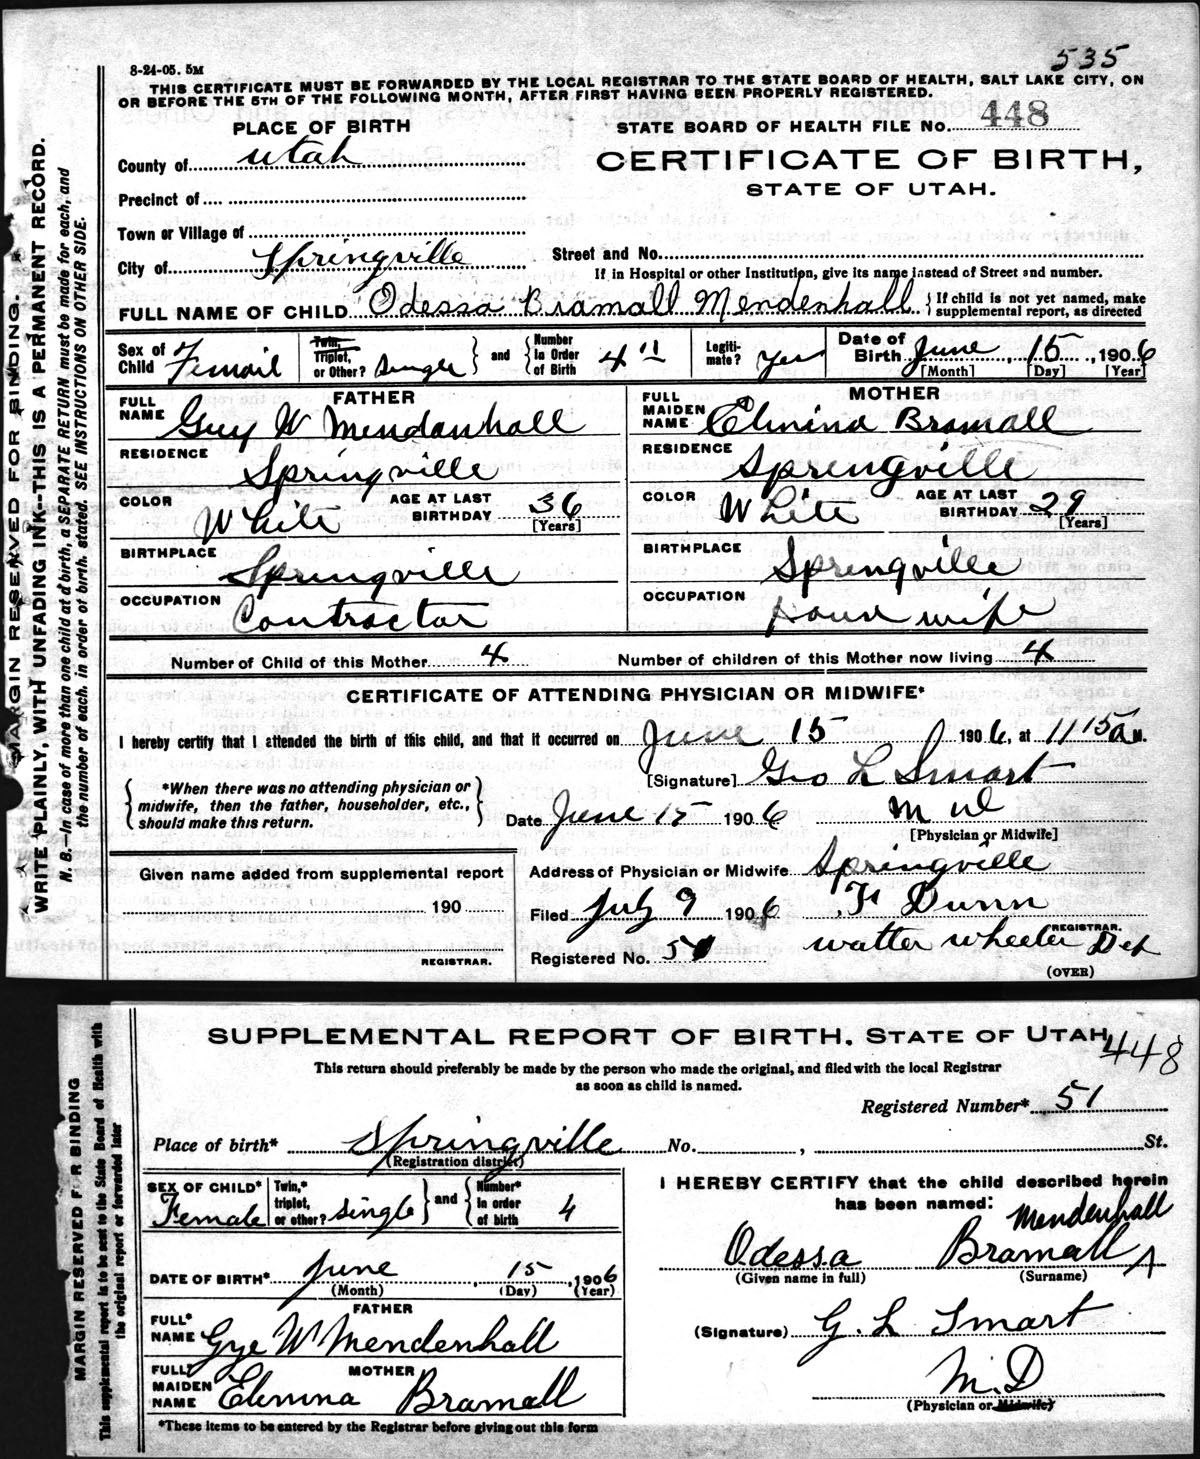 535
8-24-05. 5M
THIS CERTIFICATE MUST BE FORWARDED BY THE LOCAL REGISTRAR TO THE STATE BOARD OF HEALTH, SALT LAKE CITY, ON
OR BEFORE THE 5TH OF THE FOLLOWING MONTH, AFTER FIRST HAVING BEEN PROPERLY REGISTERED.
MARGIN RESERVED FOR BINDING.
WRITE PLAINLY, WITH UNFADING INK--THIS IS A PERMANENT RECORD.
N. B.—In case of more than one child at a birth, a SEPARATE RETURN must be made for each, and
the number of each, in order of birth, stated. SEE INSTRUCTIONS ON OTHER SIDE.
PLACE OF BIRTH
STATE BOARD OF HEALTH FILE No. 448
County of Utah
CERTIFICATE OF BIRTH,
STATE OF UTAH.
Precinct of
Town or Village of
City of Springville
Street and No.
If in Hospital or other Institution, give its name instead of Street and number.
FULL NAME OF CHILD Odessa Bramall Mendenhall { If child is not yet named, make
supplemental report, as directed
Sex of Child Femail
Twin, Triplet, or Other? Single } and { Number in Order of Birth 4"
Legitimate? Yes
Date of Birth June 15, 1906
[Month] [Day] [Year]
FATHER
FULL NAME Guy W Mendanhall
RESIDENCE Springville
COLOR White AGE AT LAST BIRTHDAY 36
[Years]
BIRTHPLACE Springville
OCCUPATION Contractor
MOTHER
FULL MAIDEN NAME Elmina Bramall
RESIDENCE Sprengville
COLOR White AGE AT LAST BIRTHDAY 29
[Years]
BIRTHPLACE Sprengville
OCCUPATION House wife
Number of Child of this Mother 4 Number of children of this Mother now living 4
CERTIFICATE OF ATTENDING PHYSICIAN OR MIDWIFE*
I hereby certify that I attended the birth of this child, and that it occurred on June 15 1906, at 11 15 a M.
{ *When there was no attending physician or
midwife, then the father, householder, etc.,
should make this return. }
[Signature] Geo L Smart
Date June 15 1906 M D
[Physician or Midwife]
Given name added from supplemental report
190
REGISTRAR.
Address of Physician or Midwife Springville
Filed July 9 1906 F Dunn
REGISTRAR.
Registered No. 51 Walter Wheeler Dep
(OVER)
MARGIN RESERVED F R BINDING
This supplemental report is to be sent to the State Board of Health with
the original report or forwarded later
SUPPLEMENTAL REPORT OF BIRTH, STATE OF UTAH
448
This return should preferably be made by the person who made the original, and filed with the local Registrar
as soon as child is named.
Registered Number* 51
Place of birth* Springville No. , St.
(Registration district)
SEX OF CHILD* Female
Twin,* triplet, or other? Single } and { Number* in order of birth 4
DATE OF BIRTH* June, 15, 1906
(Month) (Day) (Year)
FATHER
FULL* NAME Gye W Mendenhall
MOTHER
FULL* MAIDEN NAME Elmina Bramall
*These items to be entered by the Registrar before giving out this form
I HEREBY CERTIFY that the child described herein
has been named:
Mendenhall
Odessa Bramall ^
(Given name in full) (Surname)
(Signature) G. L Smart
M.D
(Physician or Midwife)